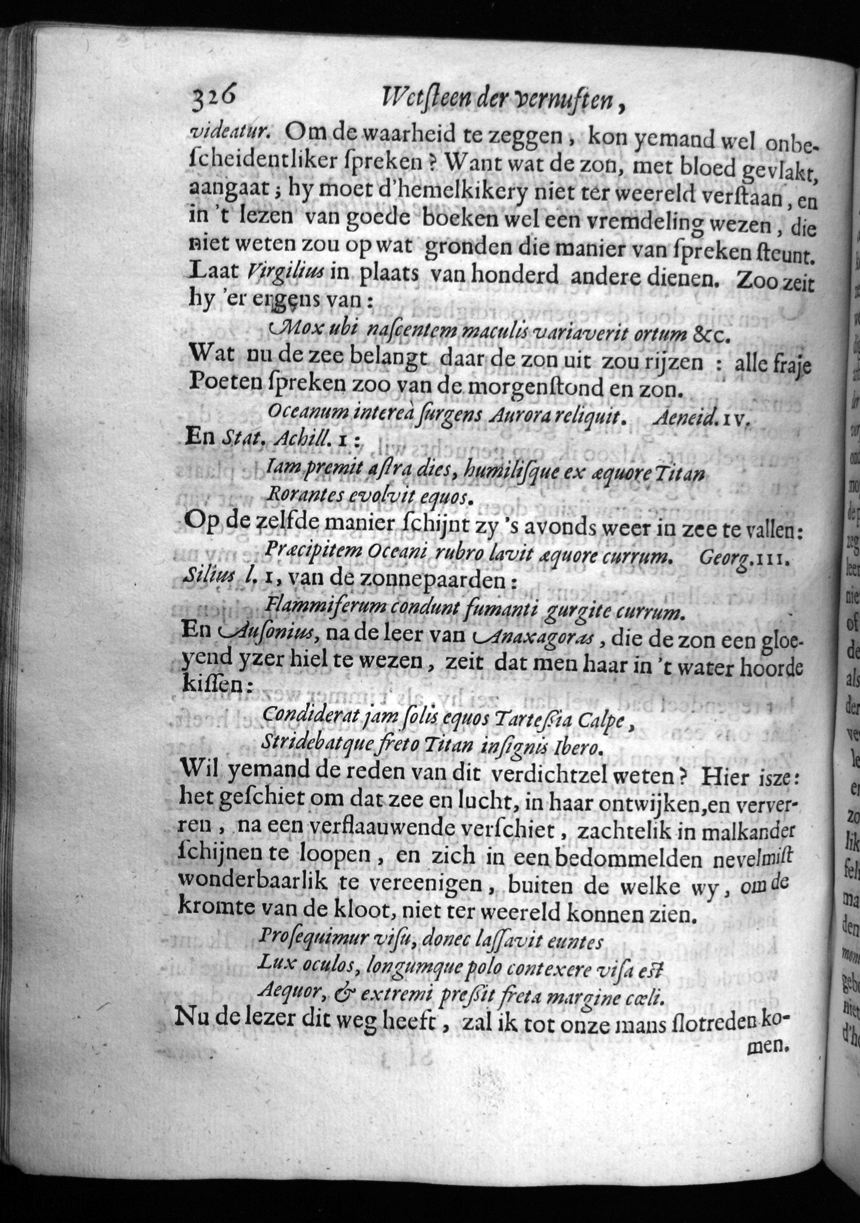 326 Wetſteen der vernuften,
videatur. Om de waarheid te zeggen, kon yemand wel onbe-
ſcheidentliker ſpreken? Want wat de zon, met bloed gevlakt,
aangaat; hy moet d'hemelkikery niet ter weereld verſtaan, en
in 't lezen van goede boeken wel een vremdeling wezen, die
niet weten zou op wat gronden die manier van ſpreken ſteunt.
Laat Virgilius in plaats van honderd andere dienen. Zoo zeit
hy 'er ergens van:
Mox ubi naſcentem maculis variaverit ortum &c.
Wat nu de zee belangt daar de zon uit zou rijzen: alle fraje
Poeten ſpreken zoo van de morgenſtond en zon.
Oceanum intereà ſurgens Aurora reliquit. Aeneid. IV.
En Stat. Achill. I:
Iam premit aſtra dies, humiliſque ex æquore Titan
Rorantes evolvit equos.
Op de zelfde manier ſchijnt zy 's avonds weer in zee te vallen:
Præcipitem Oceani rubro lavit æquore currum. Georg. III.
Silius l. I, van de zonnepaarden:
Flammiferum condunt fumanti gurgite currum.
En Auſonius, na de leer van Anaxagoras, die de zon een gloe-
yend yzer hiel te wezen, zeit dat men haar in 't water hoorde
kiſſen:
Condiderat jam ſolis equos Tarteßia Calpe,
Stridebatque freto Titan inſignis Ibero.
Wil yemand de reden van dit verdichtzel weten? Hier isze:
het geſchiet om dat zee en lucht, in haar ontwijken, en verver-
ren, na een verflaauwende verſchiet, zachtelik in malkander
ſchijnen te loopen, en zich in een bedommelden nevelmiſt
wonderbaarlik te vereenigen, buiten de welke wy, om de
kromte van de kloot, niet ter weereld konnen zien.
Proſequimur viſu, donec laſſavit euntes
Lux oculos, longumque polo contexere viſa eſt
Aequor, & extremi preßit freta margine cœli.
Nu de lezer dit weg heeft, zal ik tot onze mans ſlotreden ko-
men.